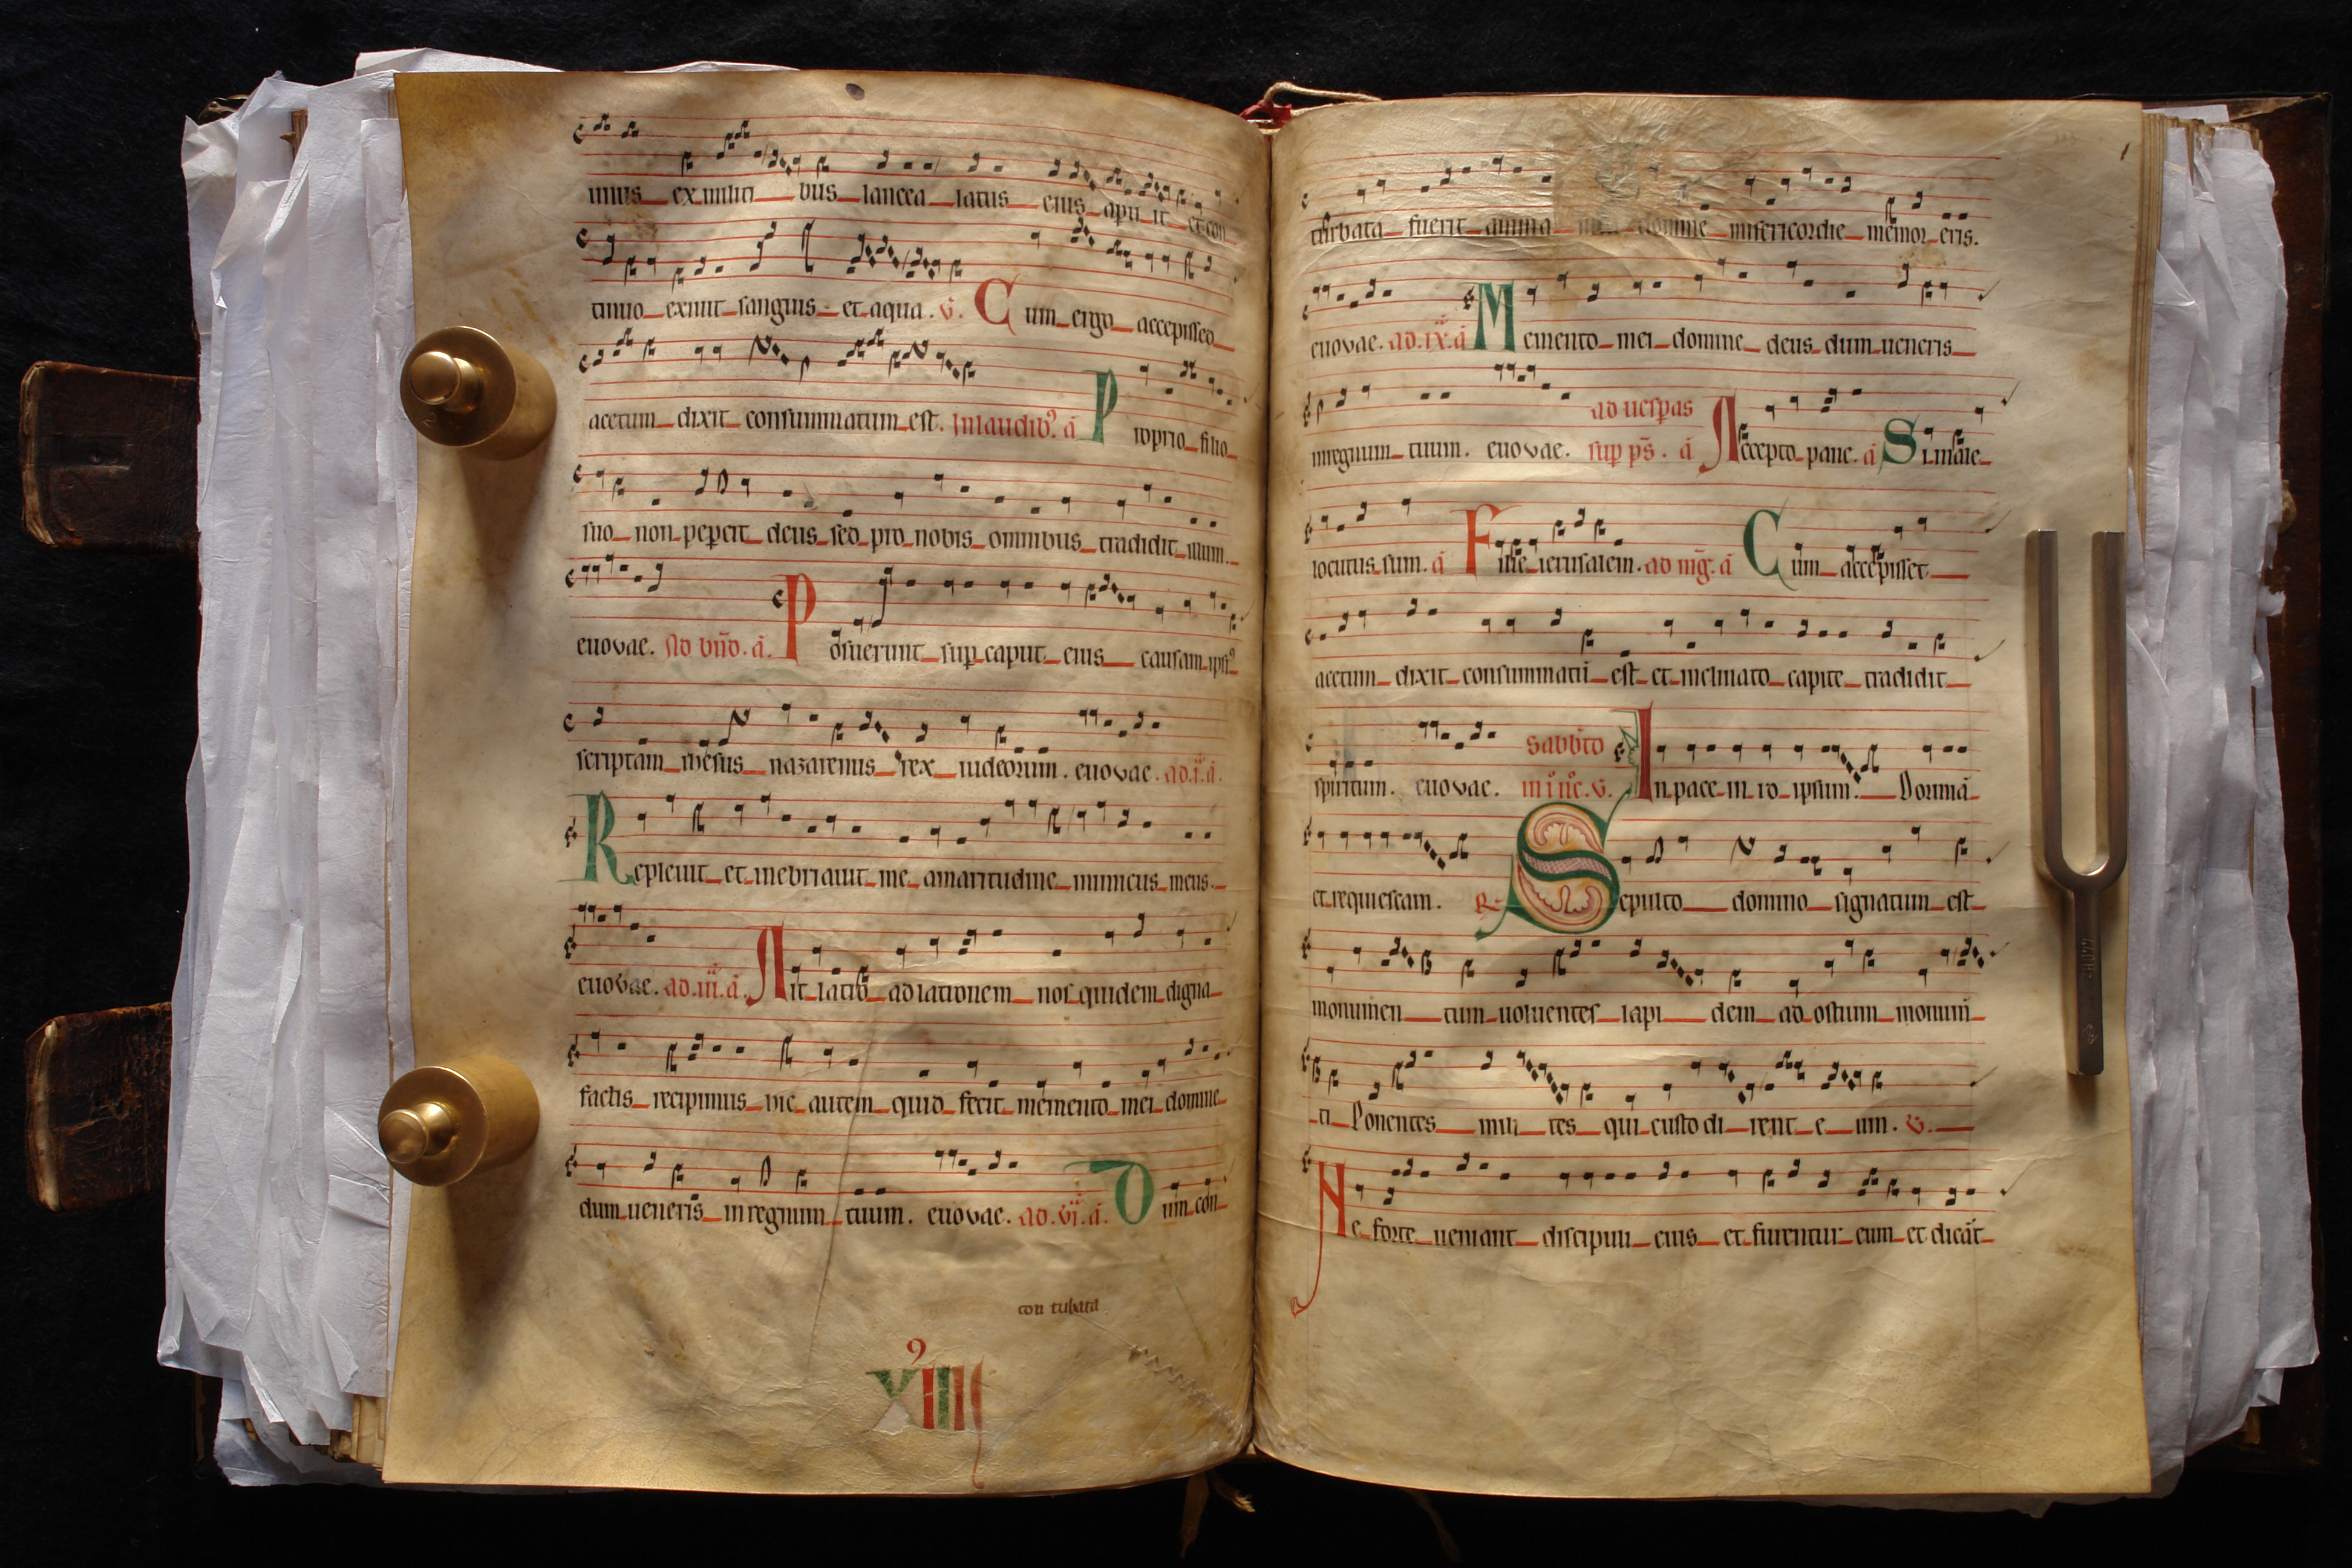 unus ex militi bus lancea latus eius apu it et con
tinuo exiuit sanguis et aqua. v. Cum ergo accepisset
acetum dixit consummatum est. In laudib9 a Proprio filio
suo non peperit deus sed pro nobis omnibus tradidit illum.
euovae. Ad bnd. a. Posuerunt sup caput eius causam ipsi9
scriptam ihesus nazarenus rex iudeorum. euovae. ad .i. a.
Repleuit et inebriauit me amaritudine inimicus meus.
euovae. ad .iii. a. Ait latro ad latronem nos quidem digna
factis recipimus hic autem quid fecit memento mei domine
dum ueneris in regnum tuum. euovae. ad .vi. a. Dum con
con tubata
9
XIIII
turbata fuerit anima mea domine misericordie memor eris.
euovae. ad .ix. a Memento mei domine deus dum ueneris
ad uespas
in regnum tuum. euovae. sup ps. a Accepto pane. a Si male
locutus sum. a Filie ierusalem. ad mg. a Cum accepisset
acetum dixit consummatu est et inclinato capite tradidit
sabbto
spiritum. euovae. in i nc. v. In pace in id ipsum. Dormia
et requiescam. R. Sepulto domino signatum est
monumen tum uoluentes lapi dem ad ostium monum
ti Ponentes mili tes qui custo di rent e um. v.
Ne forte ueniant discipuli eius et furentur eum et dicat
440Hz